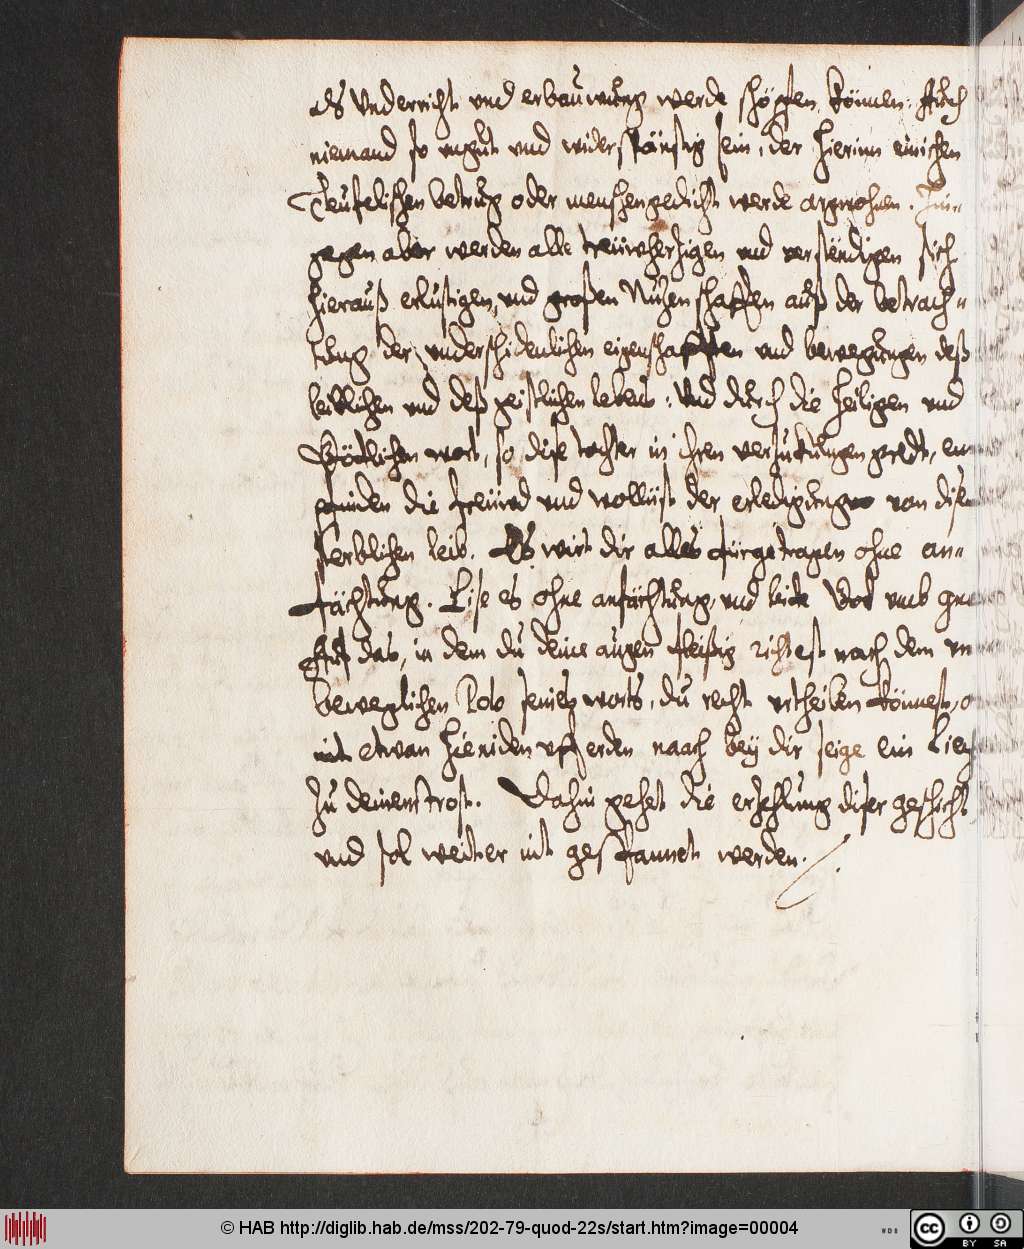 als Underricht und erbauwung werde schöpfen können. Auch
niemand so ungut und widerspänstig sein, der hierinn einichen
Teufelischen betrug oder menschengedicht werde argwohnen. Hin-
gegen aber werden alle treüwherzigen und verständigen sich
hierauß erlustigen, und großen Nutzen schaffen auß der betrach-
tung der underschidenlichen eigenschafften und bewegungen deß
leiblichen und deß geistlichen lebens: Und durch die heiligen und
Göttlichen wort, so dise tochter in ihren verzukungen geredt, em
pfinden die freüwd und wollust der erledigung von disem
sterblichen leib. Es wirt dir alles fürgetragen ohne an-
fächtung. Lise es ohne anfächtung, und bitte Got umb gnad
Auf das, in dem du deine augen fleißig richtest nach dem un
beweglichen Polo seines worts, du recht urtheilen könnest, o
nit etwan hieniden uff erden naach bey dir seige ein Liech
zu deinem trost. Dahin gehet die erzehlung diser geschicht
und sol weiter nit gespannet werden.
© HAB http://diglib.hab.de/mss/202-79-quod-22s/start.htm?image=00004
WDB
cc BY SA